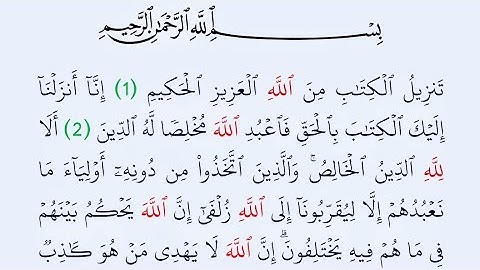 بِسْمِ اللَّهِ الرَّحْمَٰنِ الرَّحِيمِ
تَنزِيلُ الْكِتَٰبِ مِنَ اللَّهِ الْعَزِيزِ الْحَكِيمِ (1) إِنَّآ أَنزَلْنَآ
إِلَيْكَ الْكِتَٰبَ بِالْحَقِّ فَاعْبُدِ اللَّهَ مُخْلِصًا لَّهُ الدِّينَ (2) أَلَا
لِلَّهِ الدِّينُ الْخَالِصُ ۚ وَالَّذِينَ اتَّخَذُوا۟ مِن دُونِهِۦٓ أَوْلِيَآءَ مَا
نَعْبُدُهُمْ إِلَّا لِيُقَرِّبُونَآ إِلَى اللَّهِ زُلْفَىٰٓ إِنَّ اللَّهَ يَحْكُمُ بَيْنَهُمْ
فِى مَا هُمْ فِيهِ يَخْتَلِفُونَ ۗ إِنَّ اللَّهَ لَا يَهْدِى مَنْ هُوَ كَٰذِبٌ